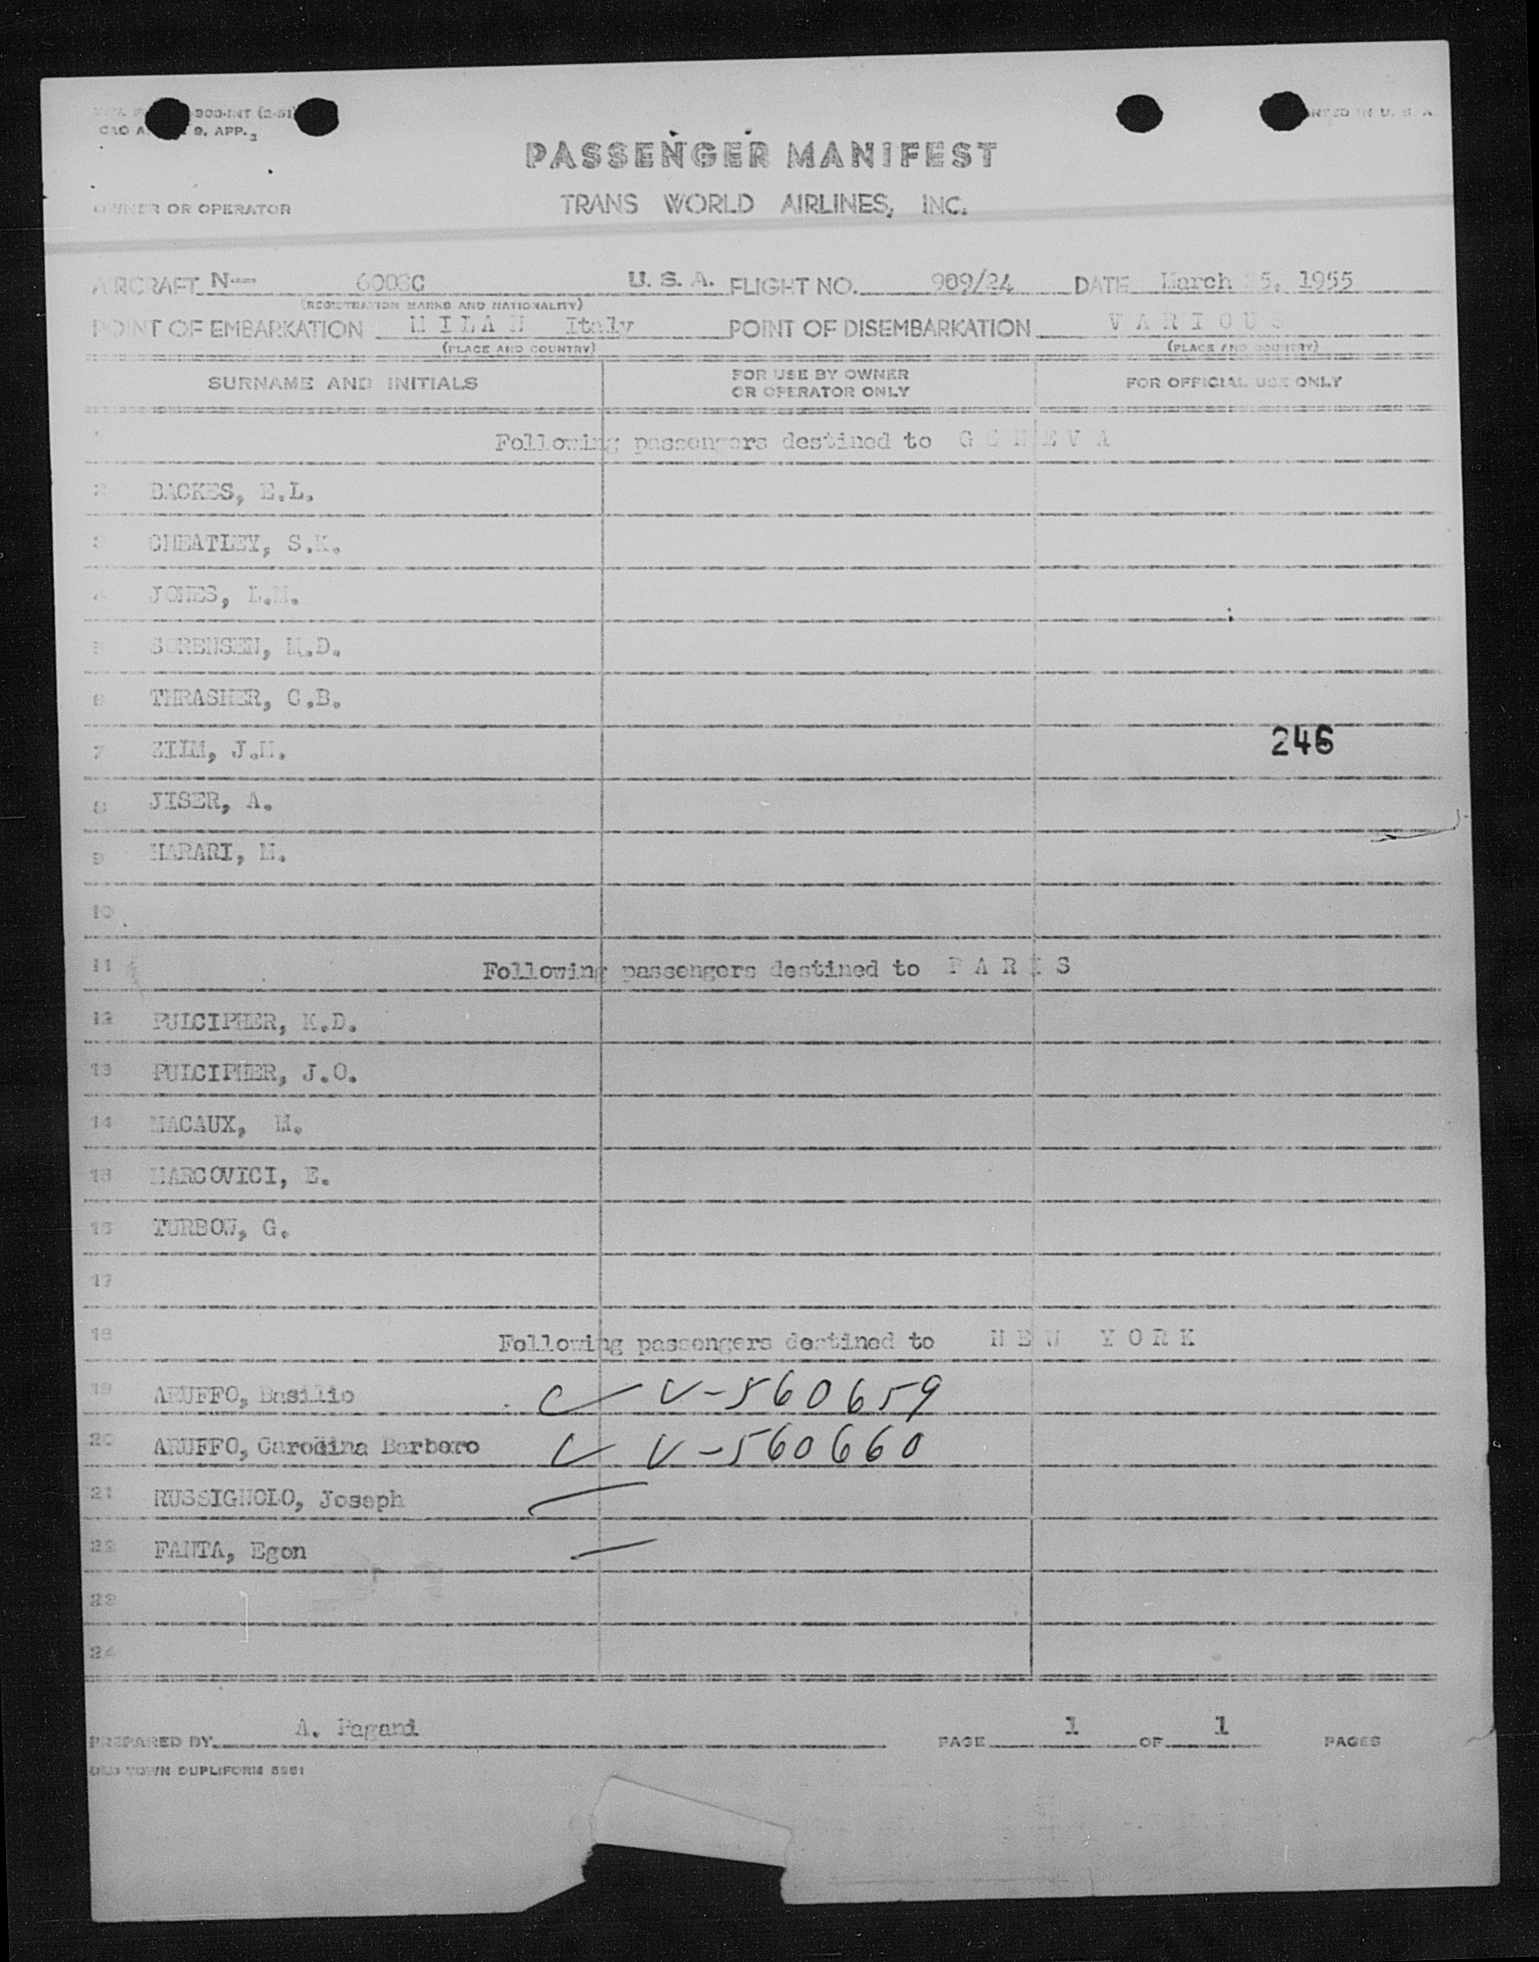 900-INT (2-51)
CAO A 9. APP. 2
PRINTED IN U. S. A.
PASSENGER MANIFEST
OWNER OR OPERATOR TRANS WORLD AIRLINES, INC.
AIRCRAFT N— 6003C U. S. A. FLIGHT NO. 989/24 DATE March 5, 1955
(REGISTRATION MARKS AND NATIONALITY)
POINT OF EMBARKATION M I L A N Italy POINT OF DISEMBARKATION V A R I O U S
(PLACE AND COUNTRY) (PLACE AND COUNTRY)
SURNAME AND INITIALS FOR USE BY OWNER OR OPERATOR ONLY FOR OFFICIAL USE ONLY
1 Following passengers destined to G E N E V A
2 BACKES, E.L.
3 CHEATLEY, S.K.
4 JONES, L.M.
5 SORENSEN, M.D.
6 THRASHER, C.B.
7 J.M. 246
8 JISER, A.
9 HARARI, M.
10
11 Following passengers destined to P A R I S
12 PULCIPHER, K.D.
13 PULCIPHER, J.O.
14 MACAUX, M.
15 MARCOVICI, E.
16 TURBOW, G.
17
18 Following passengers destined to N E W Y O R K
19 ARUFFO, Basilio V-560659
20 ARUFFO, Carodina Barbero V-560660
21 RUSSIGNOLO, Joseph
22 FANTA, Egon
23
24
PREPARED BY A. Pagani PAGE 1 OF 1 PAGES
OLD TOWN DUPLIFORM 5251